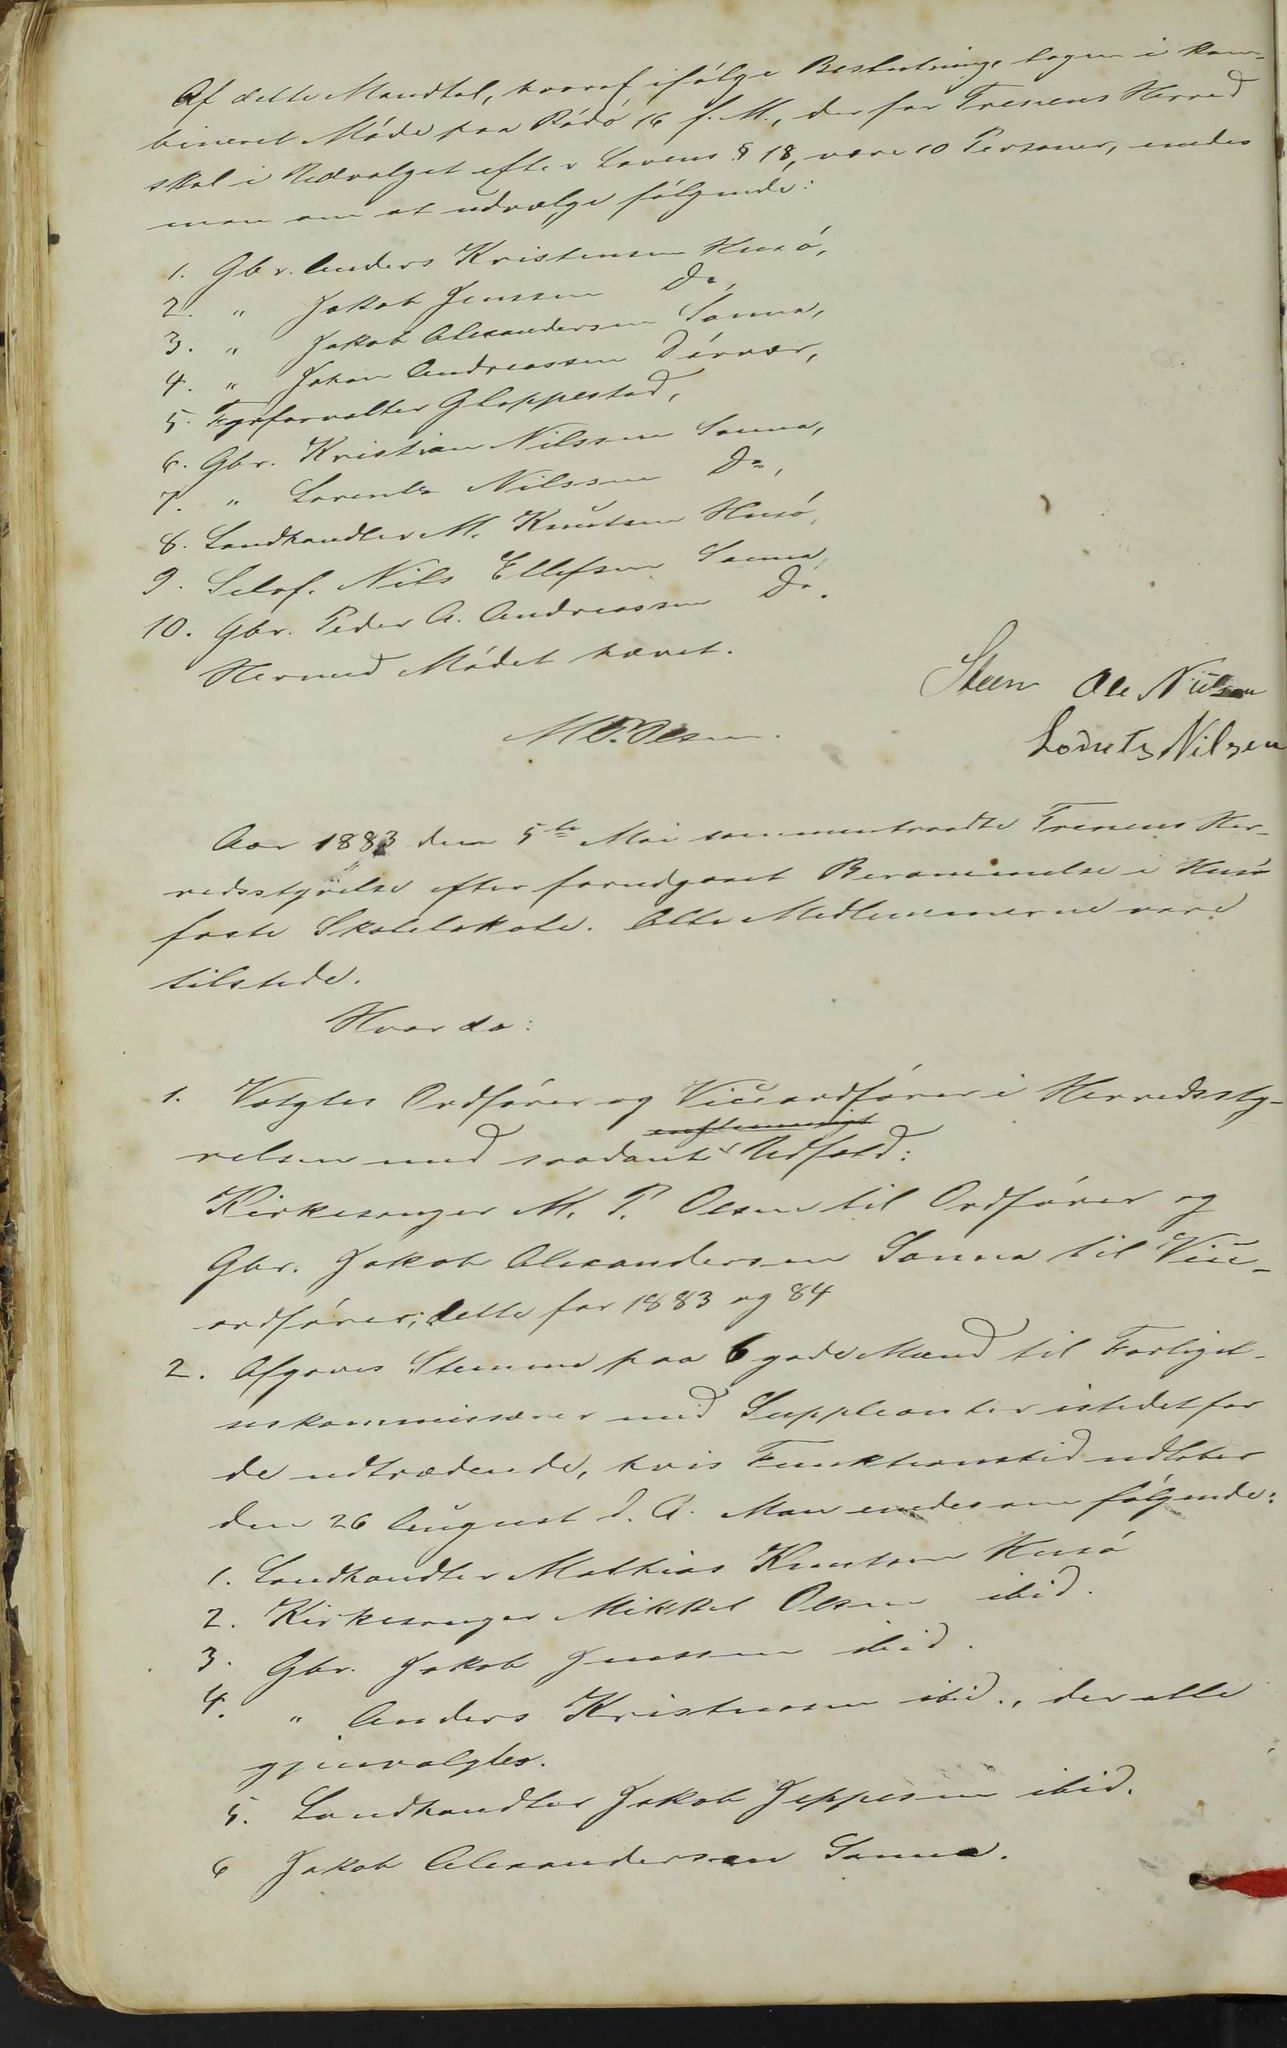 Af dette Mandtal, hvoraf ifølge Beslutning, tagen i kom-
bineret Møde paa Rødø 16 f. M., der for Trenens Herred
skal i Udvalget efter Lovens § 18, være 10 Personer, enedes
man om at udvælge følgende:
1. Gbr. Anders Kristensen Husø,
2. " Jakob Jenssen Do,
3. " Jakob Alexandersen Sanna,
4. " Johan Andreassen Dörvær,
5. Fyrforvalter Gloppestad,
6. Gbr. Kristian Nilssen Sanna,
7. " Lorents Nilssen Do,
8. Landhandler M. Knutsen Husø,
9. Selvf. Nils Ellefsen Sanna,
10. Gbr. Peder A. Andreassen Do.
Hermed Mødet hævet.
Steen Ole Nilsen
M P. Olsen. Lornts Nilsen
Aar 1883 den 5te Mai sammentraadte Trenens Her-
redsstyrelse efter forudgaaet Berammelse i Husø
faste Skolelokale. Alle Medlemmerne vare
tilstede.
Hvor da:
1. Valgtes Ordfører og Viceordfører i Herredssty-
relsen med saadant Udfald:
Kirkesanger M. P. Olsen til Ordfører og
Gbr. Jakob Alexandersen Sanna til Vice-
ordfører; dette for 1883 og 84
2. Afgaves Stemme paa 6 gode Mænd til Forligel-
seskommissærer med Suppleanter istedetfor
de udtrædende, hvis Funktionstid udløber
den 26 August d. A. Man enedes om følgende:
1. Landhandler Mathias Knutsen Husø
2. Kirkesanger Mikkel Olsen ibid.
3. Gbr. Jakob Jenssen ibid.
4. " Anders Kristensen ibid., der alle
gjenvalgtes.
5. Landhandler Jakob Jeppesen ibid.
6 Jakob Alexandersen Sanna.